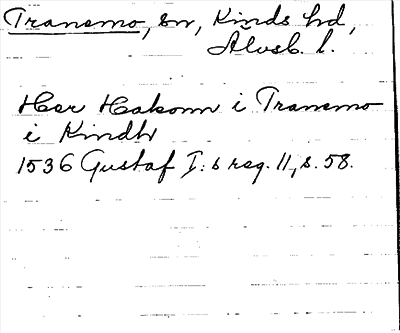 Tranemo, sn, Kinds hd,
Älvsb. l.
Her Hakonn i Tranemo
i Kindh
1536 Gustaf I:s reg. 11, s. 58.